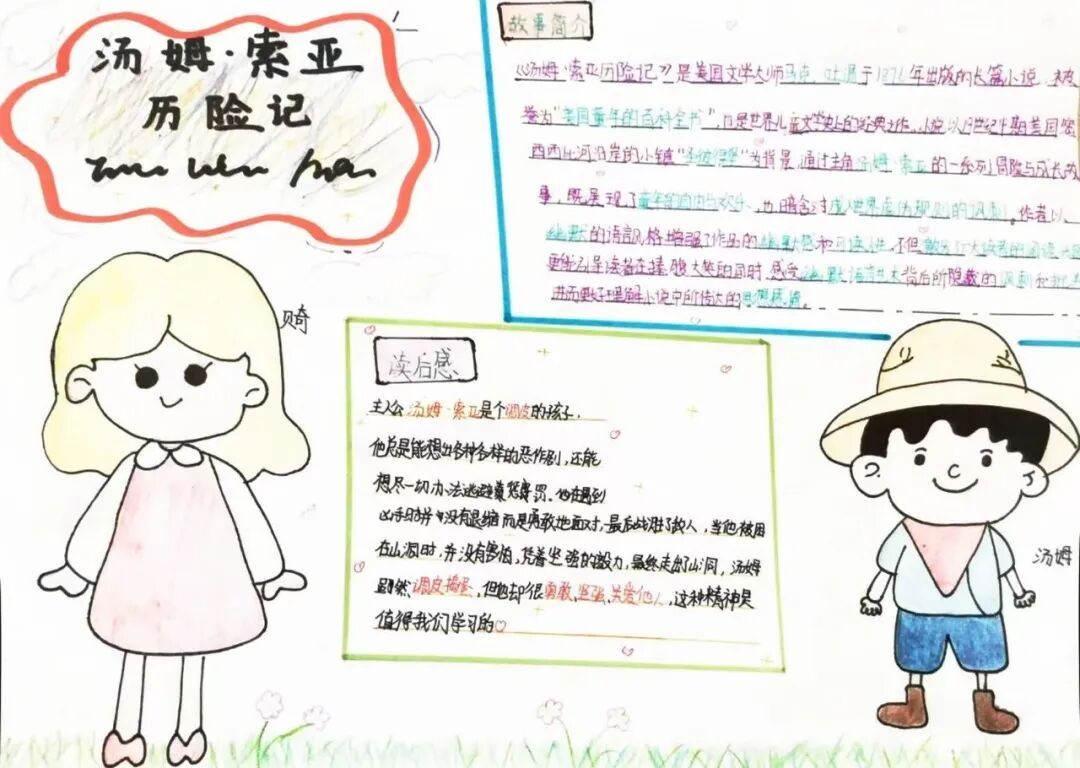 汤姆·索亚
历险记
故事简介
《汤姆·索亚历险记》是美国文学大师马克·吐温于1876年出版的长篇小说,被
誉为"美国童年的百科全书",也是世界儿童文学史上的经典之作。小说以19世纪中期美国密
西西比河沿岸的小镇"圣彼得堡"为背景,通过主角汤姆·索亚的一系列冒险与成长故
事,既展现了童年的自由与欢乐,也暗含对成人世界虚伪规则的讽刺。作者以
幽默的语言风格增强了作品的幽默感和可读性,不但
更能引导读者在捧腹大笑的同时,感受幽默语言背后所隐藏的讽刺和
进而更好理解小说中所传达的思想感情。
读后感
主人公汤姆·索亚是个调皮的孩子,
他总是能想出各种各样的恶作剧,还能
想尽一切办法逃避惩罚。他在遇到
凶手时并没有退缩而是勇敢地面对,最后战胜了敌人,当他被困
在山洞时,并没有害怕,凭着坚强的毅力,最终走出了山洞,汤姆
虽然调皮捣蛋,但他却很勇敢、坚强、关爱他人,这种精神是
值得我们学习的
汤姆